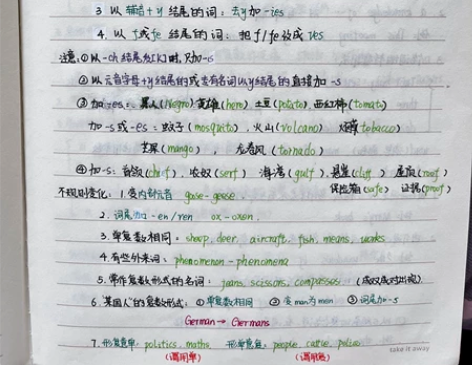 3. 以 辅音+y 结尾的词：去y加-ies
4. 以 f或fe 结尾的词：把 f/fe 改成 ves
注意：①以-ch结尾发[k]时,只加-s
②以元音字母+y结尾的或专有名词以y结尾的直接加-s
③加-es：黑人(Negro) 英雄(hero) 土豆(potato) 西红柿(tomato)
加-s或-es：蚊子(mosquito)，火山(volcano) (tobacco)
芒果(mango)，龙卷风(tornado)
④加-s：首领(chief)，农奴(serf) 海湾(gulf) 悬崖(cliff) 屋顶(roof)
保险箱(safe) 证据(proof)
不规则变化：1.变内部元音 goose-geese.
2. 词尾加-en/ren ox-oxen.
3. 单复数相同：sheep, deer, aircraft, fish, means, works
4. 有些外来词：phenomenon-phenomena
5. 常作复数形式的名词：jeans, scissors, compasses (成双成对出现)
6. 某国人的复数形式：①单复数相同 ②变man为men ③词尾加-s
German→Germans
7. 形复意单：politics, maths, 形单意复：people, cattle, police
(谓用单) (谓用复)
take it away